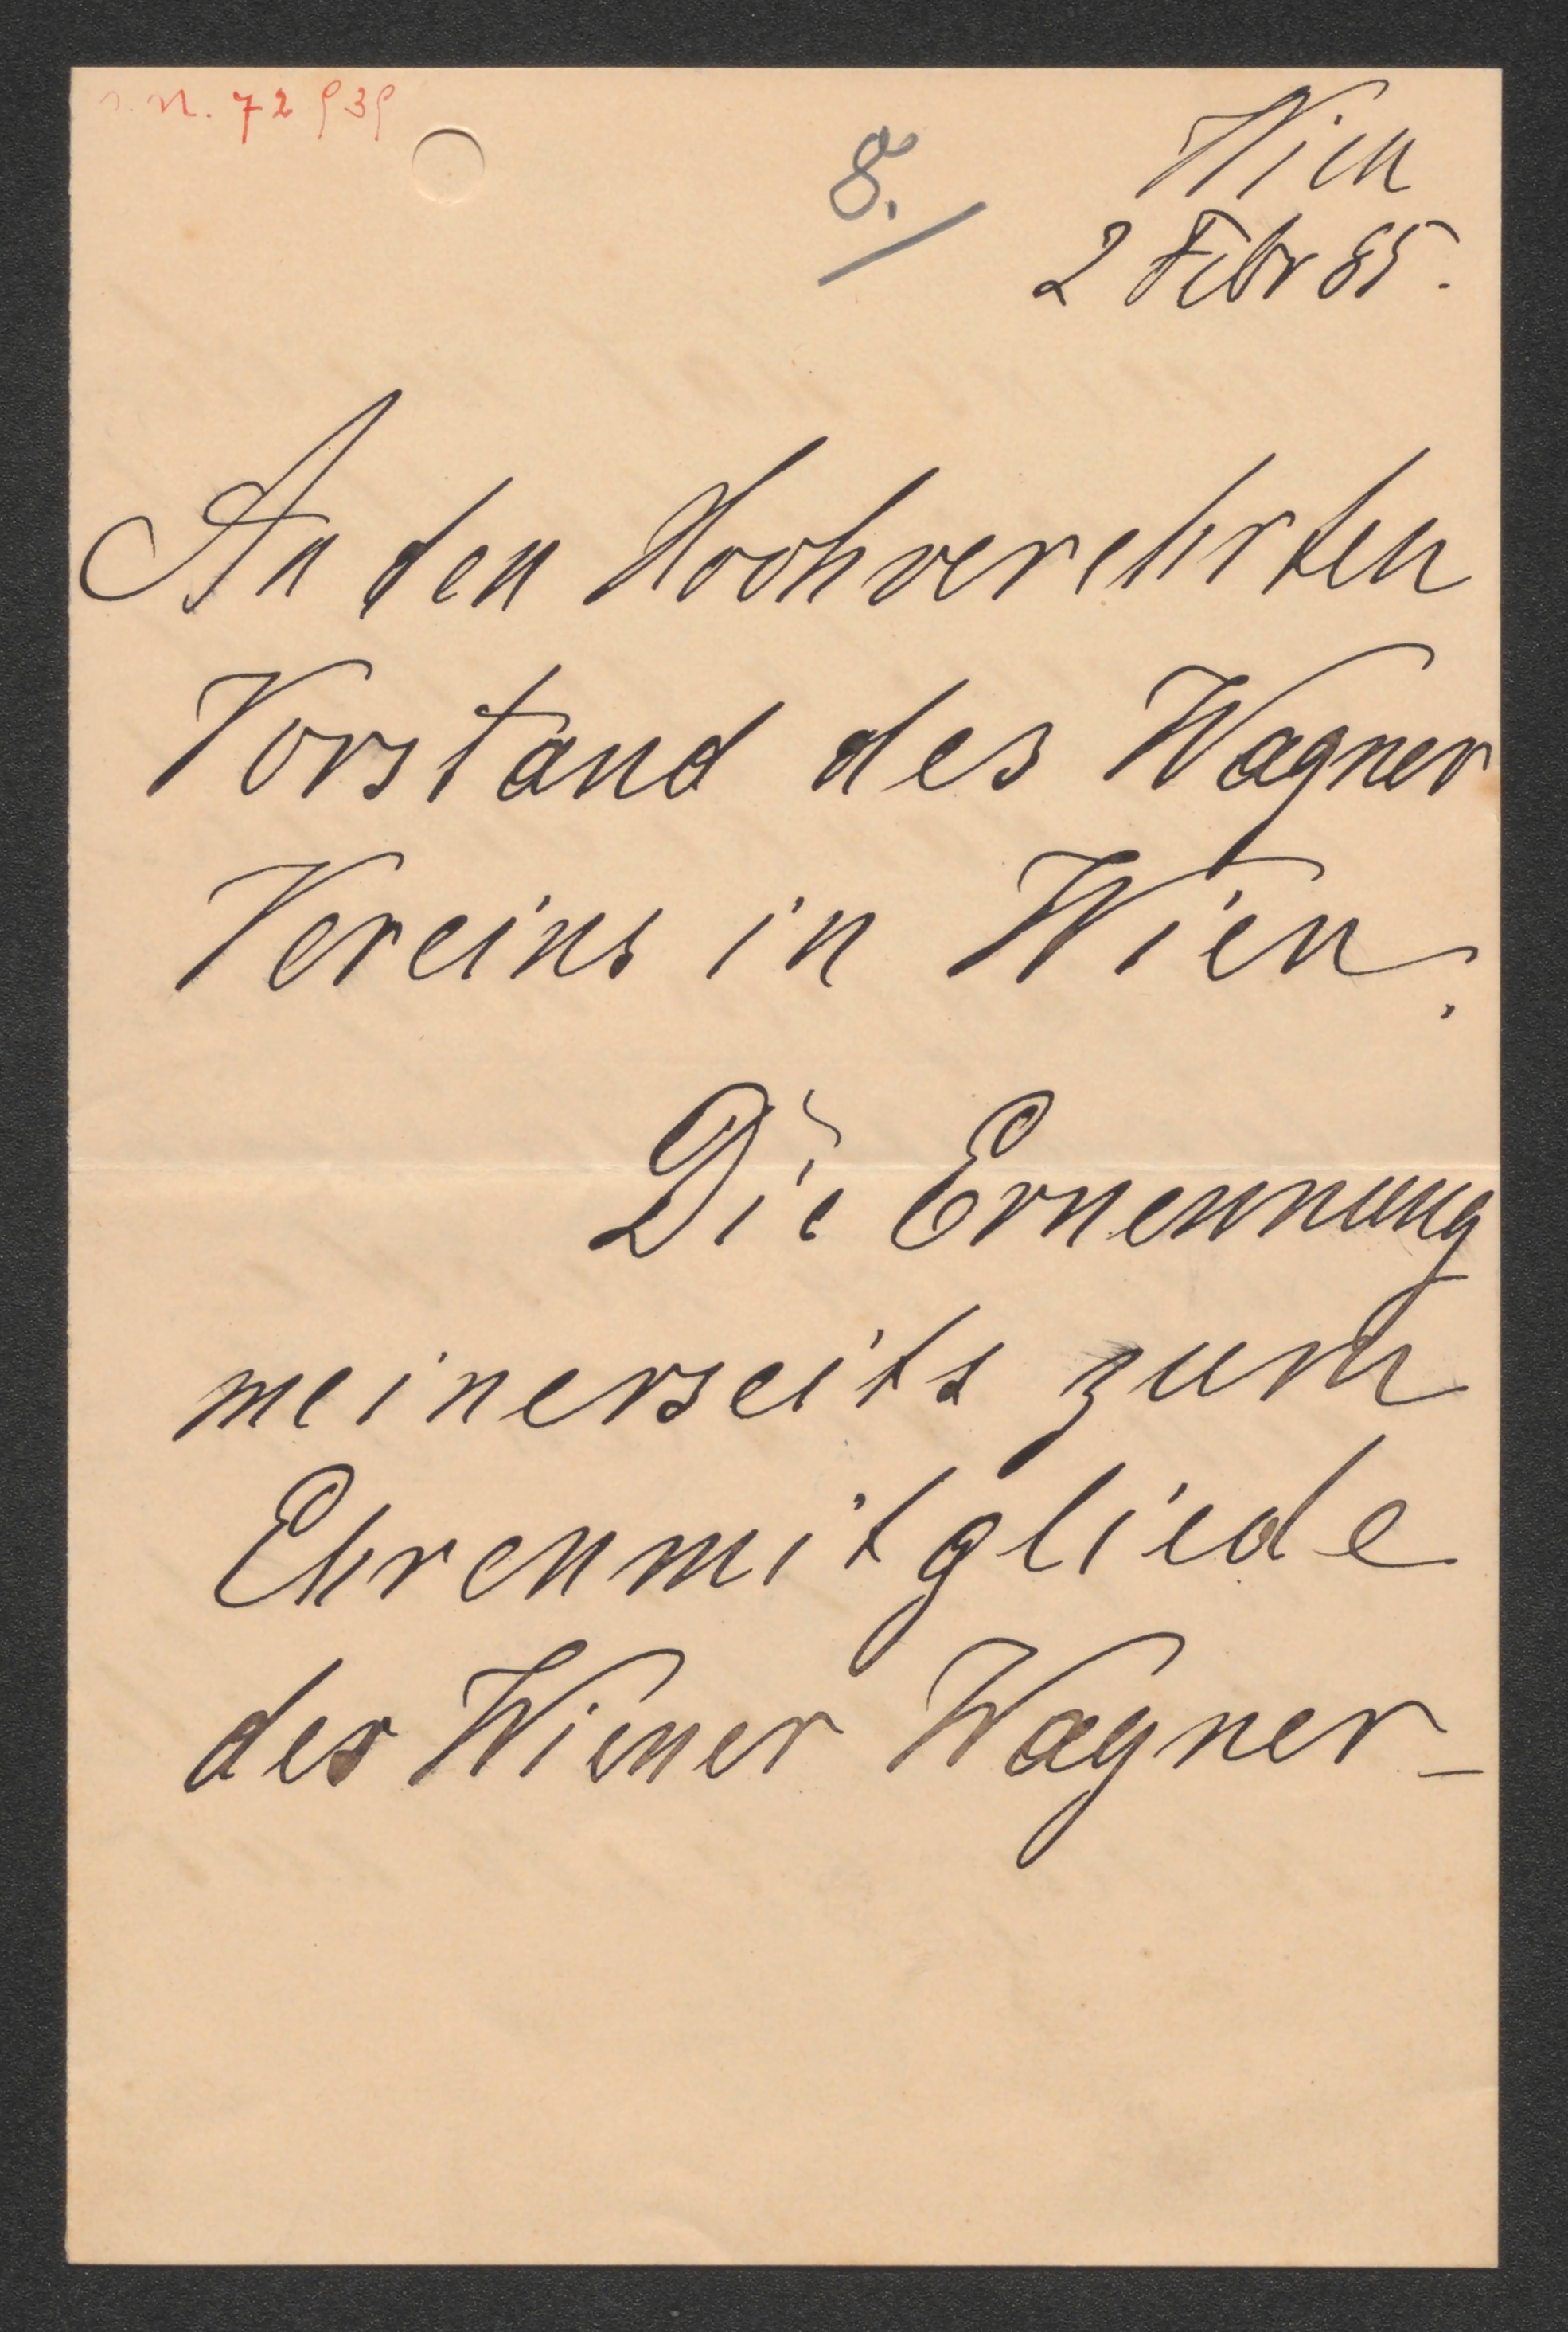 N. 72939
8.
Wien
2 Febr 85.
An den Hochverehrten
Vorstand des Wagner
Vereins in Wien.
Die Ernennung
meinerseits zum
Ehrenmitgliede
des Wiener Wagner-